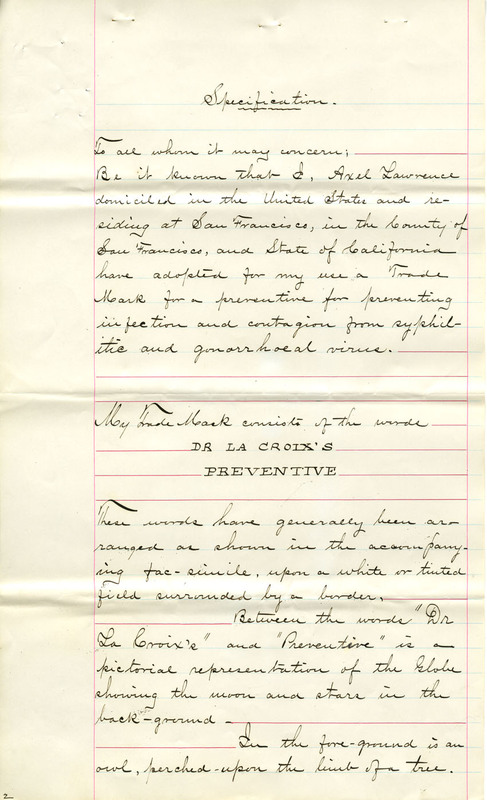 Specification.
To all whom it may concern;
Be it known that I, Axel Lawrence
domiciled in the United States and re-
siding at San Francisco, in the County of
San Francisco, and State of California
have adopted for my use a Trade
Mark for a preventive for preventing
infection and contagion from syphil-
itic and gonorrhoeal virus.
My Trade Mark consists of the words
DR LA CROIX'S
PREVENTIVE
These words have generally been ar-
ranged as shown in the accompany-
ing fac-simile, upon a white or tinted
field surrounded by a border,
Between the words "Dr
La Croix's" and "Preventive" is a
pictorial representation of the Globe
showing the moon and stars in the
back-ground -
In the fore-ground is an
owl, perched-upon the limb of a tree.
2